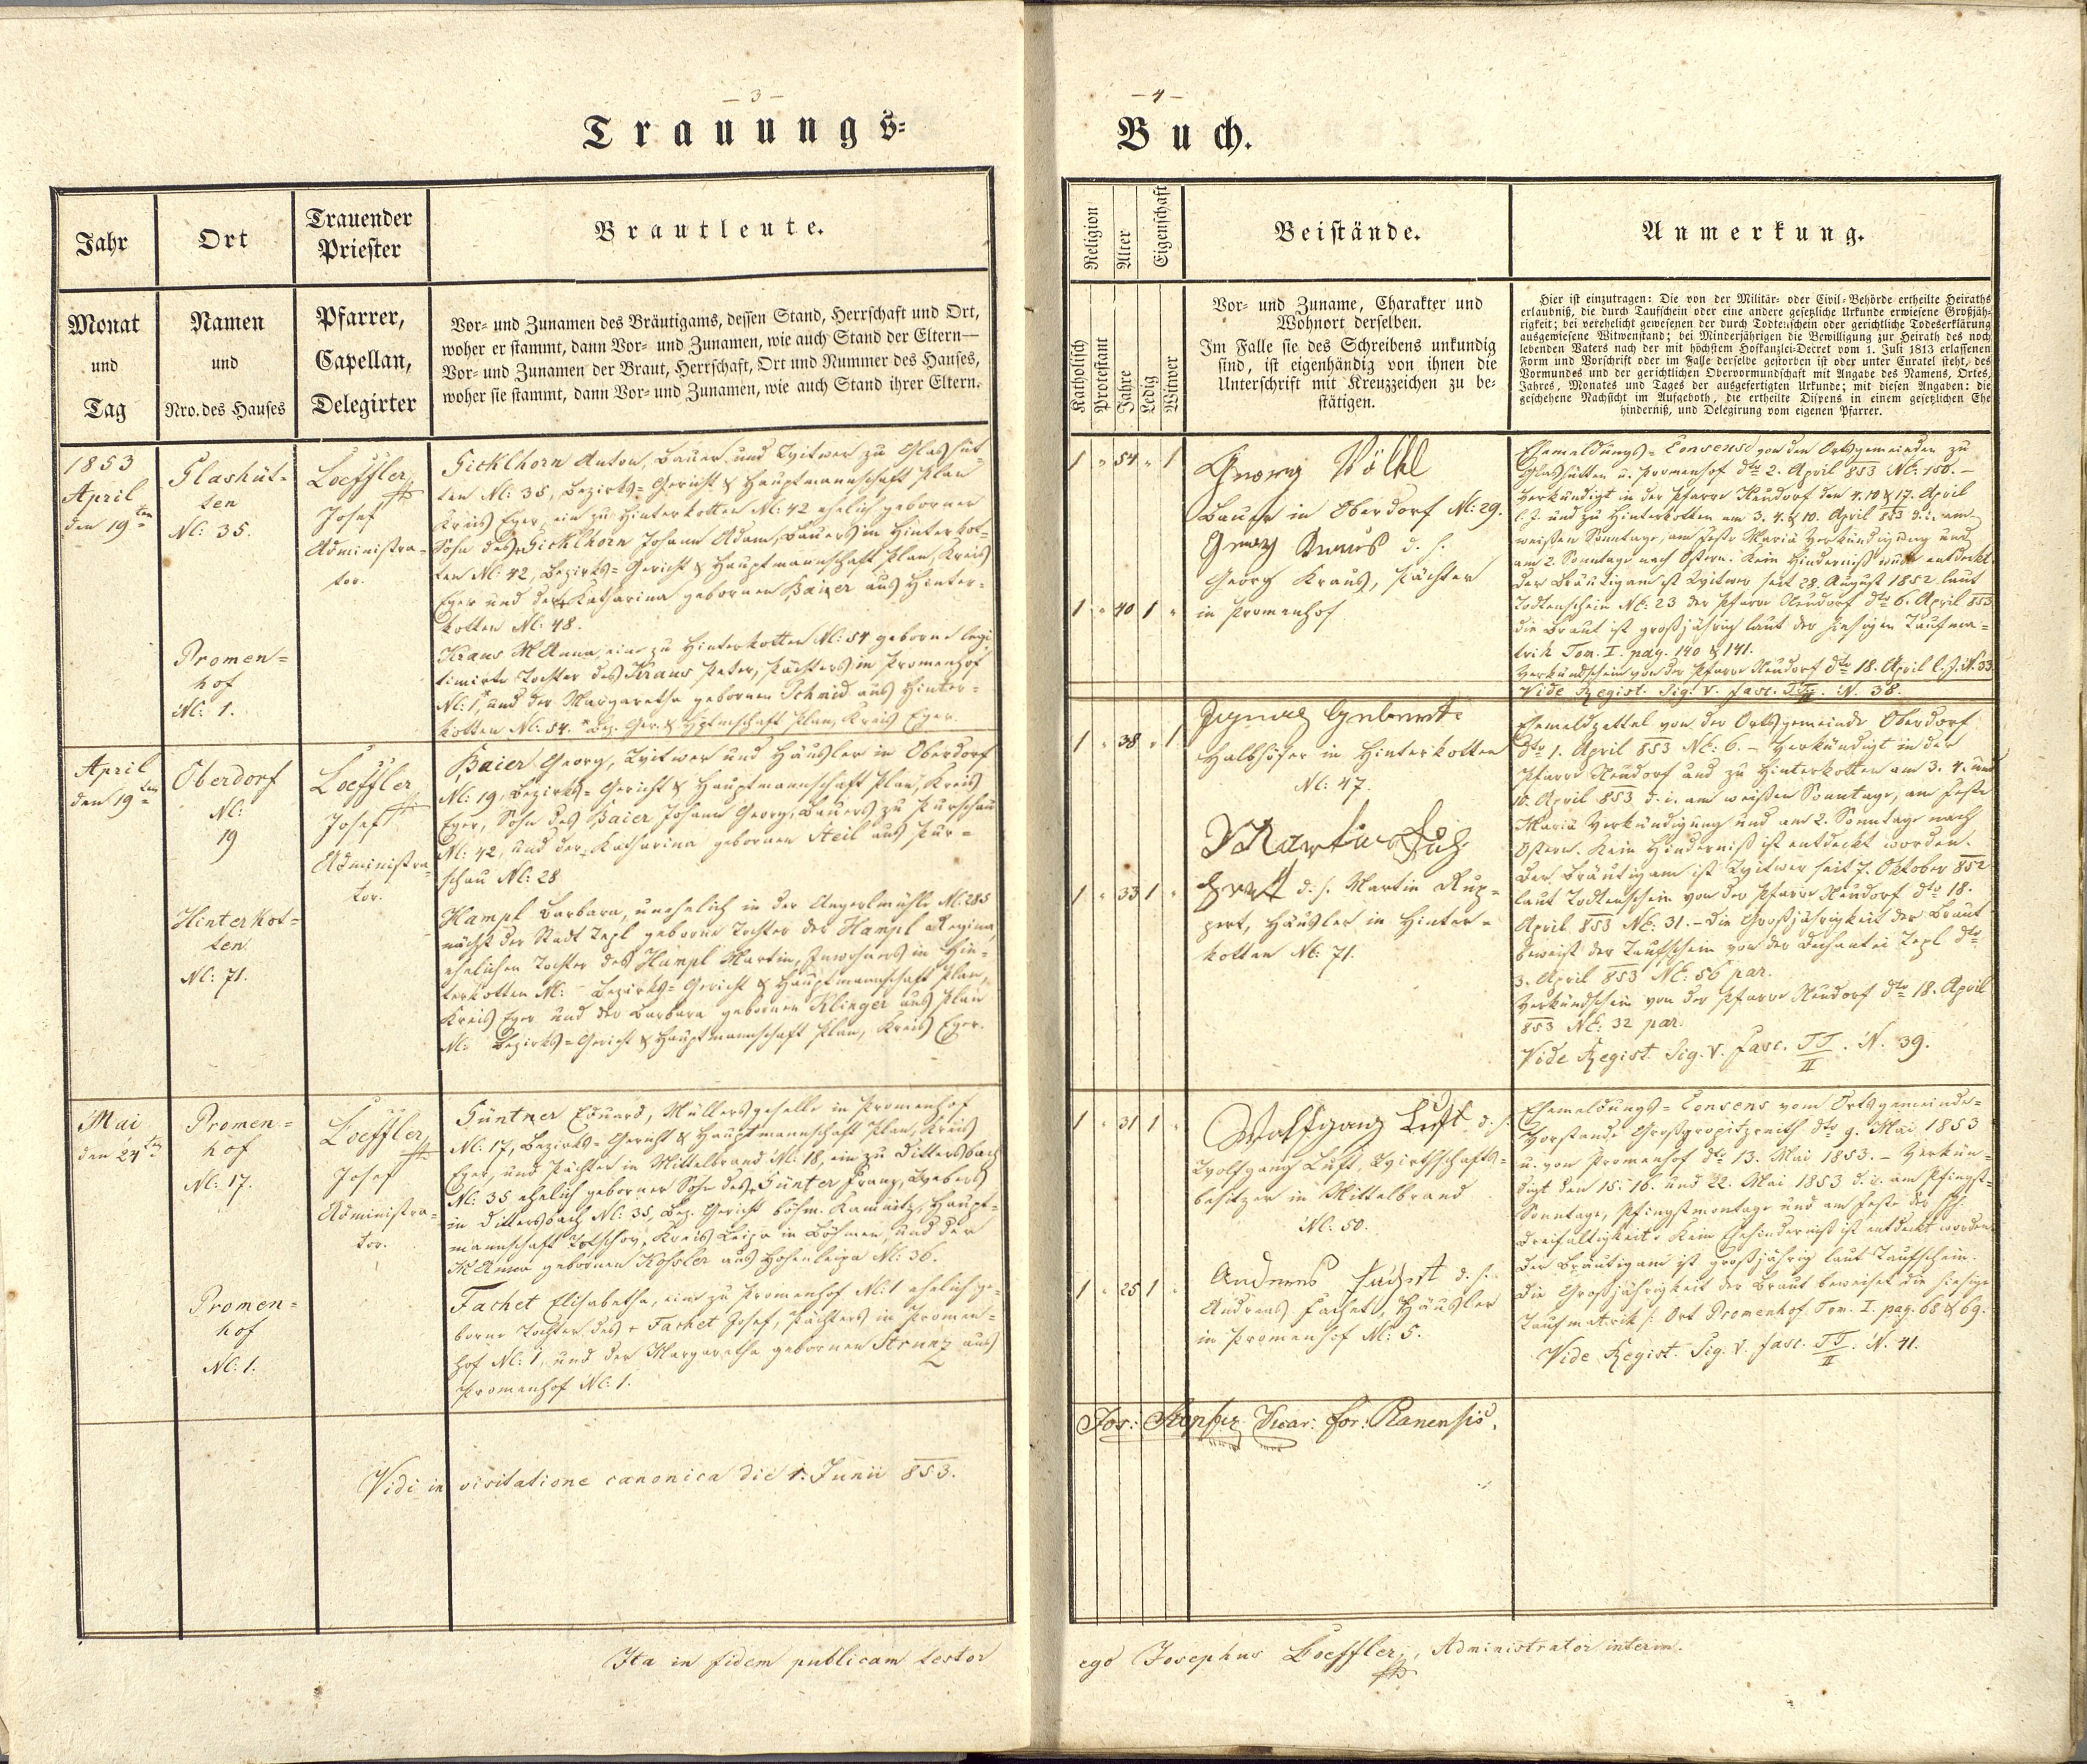 — 3 —
Trauungs=
Jahr
Monat
und
Tag
Ort
Namen
und
Nro. des Hauses
Trauender
Priester
Pfarrer,
Capellan,
Delegirter
Brautleute.
Vor= und Zunamen des Bräutigams, dessen Stand, Herrschaft und Ort,
woher er stammt, dann Vor= und Zunamen, wie auch Stand der Eltern—
Vor= und Zunamen der Braut, Herrschaft, Ort und Nummer des Hauses,
woher sie stammt, dann Vor= und Zunamen, wie auch Stand ihrer Eltern.
1853
April
den 19ten
Glashüt=
ten
No: 35.
Promen=
hof
No: 1.
Loeffler
Josef
Administra=
tor.
Gicklhorn Anton, Bauer und Witwer zu Glashüt=
ten No: 35, Bezirks=Gericht & Hauptmannschaft Plan
Kreis Eger, ein zu Hinterkotten No: 42 ehelich geborner
Sohn des Gicklhorn Johann Adam, Bauers in Hinterkot=
ten No: 42, Bezirks=Gericht & Hauptmannschaft Plan, Kreis
Eger und der Katharina gebornen Bauer aus Hinter=
kotten No: 48.
Kraus M Anna, eine zu Hinterkotten No: 54 geborne legi
timirte Tochter des Kraus Peter, Pächters in Promenhof
No: 1, und der Margaretha gebornen Schmid aus Hinter=
kotten No: 54. Bez. Ger. & Hptmschaft Plan, Kreis Eger.
April
den 19ten
Oberdorf
No:
19
Hinterkot=
ten
No: 71.
Loeffler
Josef
Administra
tor.
Baier Georg, Witwer und Häusler in Oberdorf
No: 19, Bezirks=Gericht & Hauptmannschaft Plan, Kreis
Eger, Sohn des Baier Johann Georg, Bauers zu Purschau
No: 42, und der Katharina gebornen Steil aus Pur=
schau No: 28
Hampl Barbara, unehelich in der Angerlmühle No: 285
nächst der Stadt Tepl geborne Tochter der Hampl Regina,
ehelichen Tochter des Hampl Martin, Inwohners in Hin=
terkotten No: Bezirks=Gericht & Hauptmannschaft Plan,
Kreis Eger und der Barbara gebornen Klinger aus Plan
No: Bezirks=Gericht & Hauptmannschaft Plan, Kreis Eger.
Mai
den 24ten
Promen=
hof
No: 17.
Promen=
hof
No: 1.
Loeffler
Josef
Administra=
tor.
Güntner Eduard, Müllersgeselle in Promenhof
No: 17, Bezirks=Gericht & Hauptmannschaft Plan, Kreis
Eger, und Pächter in Mittelbrand No: 18, ein zu Dittersbach
No: 35 ehelich geborner Sohn des Günter Franz, Webers
in Dittersbach No: 35, Bez. Gericht böhm. Kamnitz, Haupt=
mannschaft Tetschen, Kreis Leipa in Böhmen, und der
M Anna gebornen Kohsler aus Hohenleipa No: 36.
Fachet Elisabetha, eine zu Promenhof No: 1 ehelich ge=
borne Tochter des Fachet Josef, Pächters in Promen=
hof No: 1, und der Margaretha gebornen Strunz aus
Promenhof No: 1.
Vidi in visitatione canonica die 1. Junii 853.
Ita in fidem publicam testor
— 4 —
Buch.
Religion
Alter
Eigenschaft
Katholisch
Protestant
Jahre
Ledig
Witwer
Beistände.
Vor= und Zuname, Charakter und
Wohnort derselben.
Im Falle sie des Schreibens unkundig
sind, ist eigenhändig von ihnen die
Unterschrift mit Kreuzzeichen zu be=
stätigen.
Anmerkung.
Hier ist einzutragen: Die von der Militär= oder Civil=Behörde ertheilte Heiraths
erlaubniß, die durch Taufschein oder eine andere gesetzliche Urkunde erwiesene Großjäh=
rigkeit; bei verehelicht gewesenen der durch Todtenschein oder gerichtliche Todeserklärung
ausgewiesene Witwenstand; bei Minderjährigen die Bewilligung zur Heirath des noch
lebenden Vaters nach der mit höchstem Hofkanzlei=Decret vom 1. Juli 1813 erlassenen
Form und Vorschrift oder im Falle derselbe gestorben ist oder unter Curatel steht, des
Vormundes und der gerichtlichen Obervormundschaft mit Angabe des Namens, Ortes,
Jahres, Monates und Tages der ausgefertigten Urkunde; mit diesen Angaben: die
geschehene Nachsicht im Aufgeboth, die ertheilte Dispens in einem gesetzlichen Ehe
hinderniß, und Delegirung vom eigenen Pfarrer.
1 " 54 " 1
Georg Völkl
Bauer in Oberdorf No: 29.
Georg Kraus d. i.
Georg Kraus, Pächter
1 " 40 1 "
in Promenhof
Ehemeldungs=Consense von den Ortsgemeinden zu
Glashütten u. Promenhof dto 2. April 853 No: 150.—
Verkündigt in der Pfarre Neudorf den 4. 10 & 17. April
l. J. und zu Hinterkotten am 3. 4. & 10. April 853 d. i. am
weißen Sonntage, am Feste Mariä Verkündigung und
am 2. Sonntage nach Ostern. Kein Hinderniß wurde entdeckt.
Der Bräutigam ist Witwer seit 28. August 1852 laut
Todtenschein No: 23 der Pfarre Neudorf dto 6. April 853
Die Braut ist großjährig laut der hiesigen Taufma=
trik Tom. I. pag. 140 & 141.
Verkündschein von der Pfarre Neudorf dto 18. April l. J. No: 33
Vide Regist. Sig. V. fasc. TT/II. N. 38.
1 " 38 " 1
Halbhöfer in Hinterkotten
No: 47.
1 " 33 1 "
d. i. Martin Rup=
pert, Häusler in Hinter=
kotten No: 71.
Ehemeldzettel von der Ortsgemeinde Oberdorf
dto 1. April 853 No: 6.— Verkündigt in der
Pfarre Neudorf und zu Hinterkotten am 3. 4. und
10. April 853 d. i. am weißen Sonntage, am Feste
Mariä Verkündigung und am 2. Sonntage nach
Ostern. Kein Hinderniß ist entdeckt worden.
Der Bräutigam ist Witwer seit 7. Oktober 852
laut Todtenschein von der Pfarre Neudorf dto 18.
April 853 No: 31.— Die Großjährigkeit der Braut
beweist der Taufschein von der Dechantei Tepl dto
3. April 853 No: 56 par.
Verkündschein von der Pfarre Neudorf dto 18. April
853 No: 32 par.
Vide Regist. Sig. V. fasc. TT/II. N. 39.
1 " 31 1 "
Wolfgang Luft d. i.
Wolfgang Luft, Wirthschafts=
besitzer in Mittelbrand
No: 50.
1 " 25 1 "
Andreas Fachet d. i.
Andreas Fachet, Häusler
in Promenhof No: 5.
Ehemeldungs=Consens vom Ortsgemeinde=
Vorstande Großgropitzreith dto 9. Mai 1853
u. von Promenhof dto 13. Mai 1853.— Verkün=
digt den 15. 16. und 22. Mai 1853 d. i. am Pfingst=
Sonntage, Pfingstmontage und am Feste der hh.
Dreifaltigkeit. Kein Ehehinderniß ist entdeckt worden.
Der Bräutigam ist großjährig laut Taufschein.
Die Großjährigkeit der Braut beweiset die hiesige
Taufmatrik /: Ort Promenhof Tom. I. pag. 68 & 69.
Vide Regist. Sig. V. fasc. TT/II. N. 41.
Jos: Stopfer Vicar: for: Planensis.
ego Josephus Loeffler, Administrator interim.